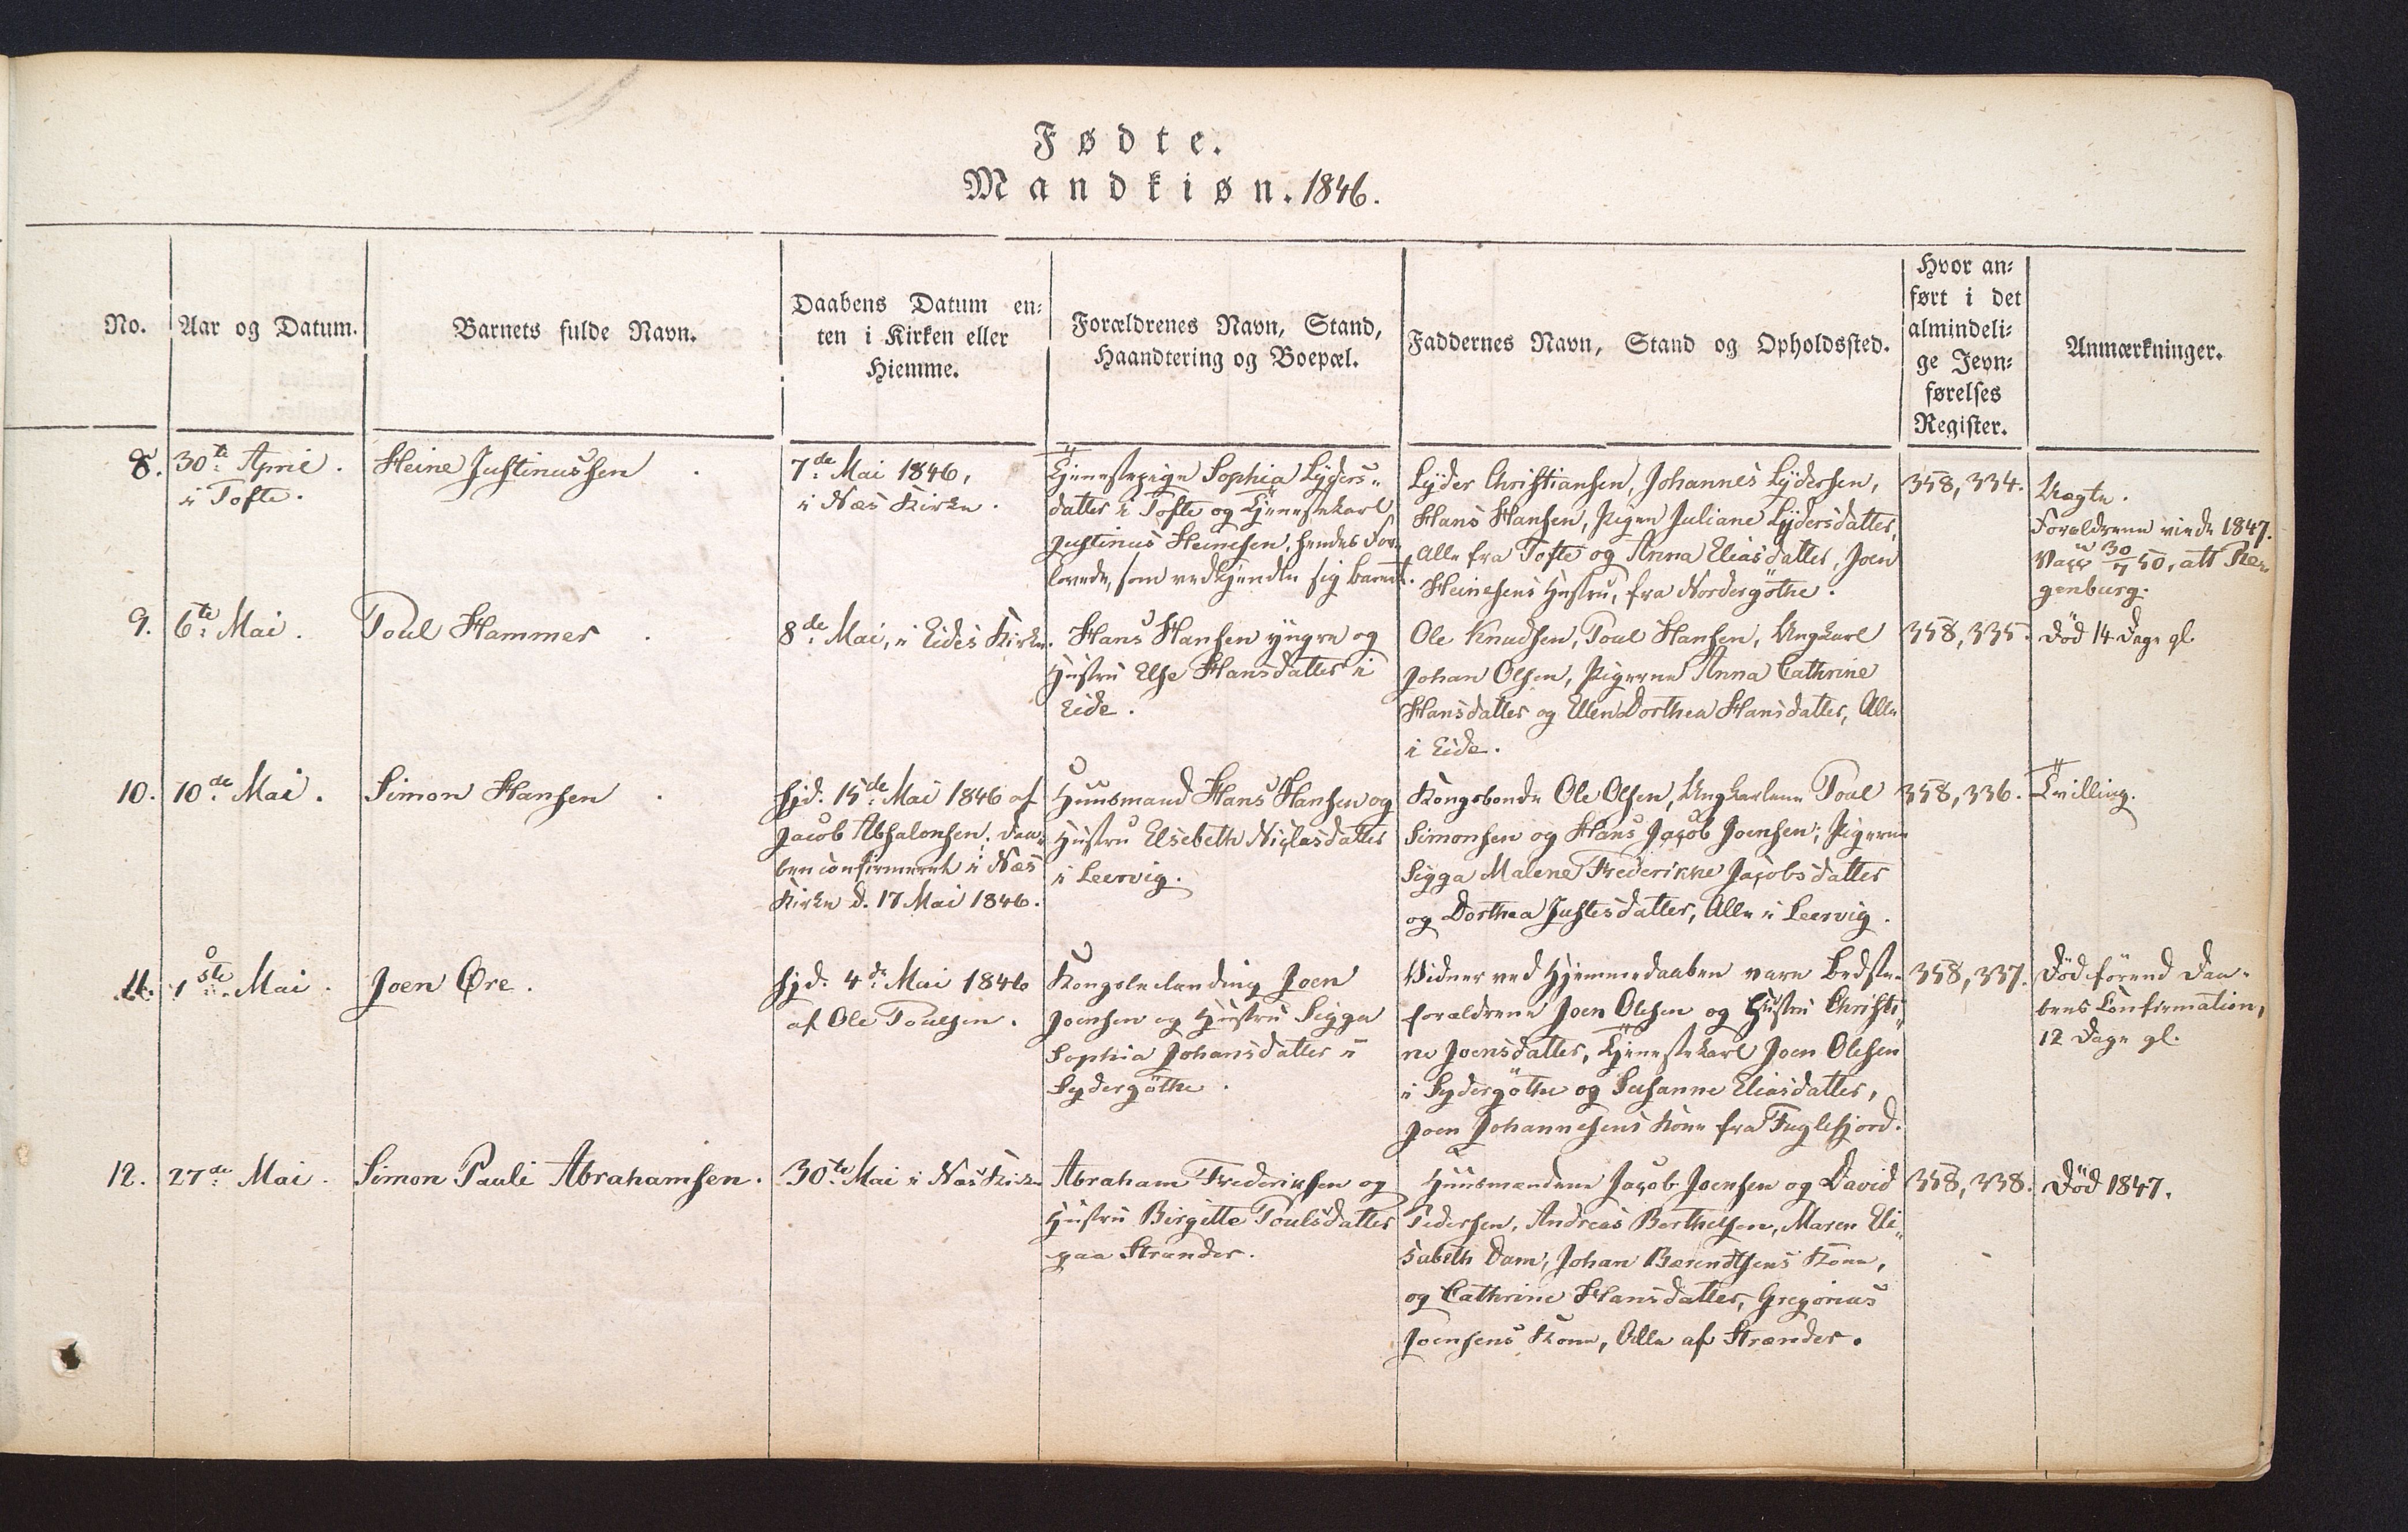 Fødte.
Mandkiøn. 1846.
No.
Aar og Datum.
Barnets fulde Navn.
Daabens Datum en-
ten i Kirken eller
Hiemme.
Forældrenes Navn, Stand,
Haandtering og Boepæl.
Faddernes Navn, Stand og Opholdssted.
Hvor an-
ført i det
almindeli-
ge Jevn-
førelses
Register.
Anmærkninger.
8.
30te April.
i Tofte.
Heine Justinussen
7de Mai 1846,
i Næs Kirke.
Tjenestepige Sophia Lÿders-
datter i Tofte og Tjenestekarl
Justinus Heinesen, hendes For-
lovede, som vedkjendte sig barnet.
Lÿder Christiansen, Johannes Lÿdersen,
Hans Hansen, Pigen Juliane Lÿdersdatter,
Alle fra Tofte og Anna Eliasdatter, Joen
Heinesens Hustru, fra Nordergöthe.
358, 334.
Uægte.
Forældrene viede 1847.
Vacc 30/7 50, att Re-
genburg.
9.
6te Mai.
Poul Hammer
8de Mai, i Eides Kirke.
Hans Hansen yngre og
Hustru Else Hansdatter i
Eide.
Ole Knudsen, Poul Hansen, Ungkarl
Johan Olsen, Pigerne Anna Cathrine
Hansdatter og Ellen Dorthea Hansdatter, Alle
i Eide.
358, 335.
Död 14 Dage gl.
10.
10de Mai.
Simon Hansen
hjd. 15de Mai 1846 af
Jacob Absalonsen. Daa-
ben confirmeret i Næs
Kirke d. 17 Mai 1846.
Huusmand Hans Hansen og
Hustru Elsebeth Niclasdatter
i Leervig.
Kongsbonde Ole Olsen, Ungkarlene Poul
Simonsen og Hans Jacob Joensen; Pigerne
Sigga Malene Frederikke Jacobsdatter
og Dorthea Justesdatter, Alle i Leervig.
358, 336.
Tvilling.
11.
1ste Mai.
Joen Øre.
hjd. 4de Mai 1846
af Ole Poulsen.
Kongslelænding Joen
Joensen og Hustru Sigga
Sophia Johansdatter i
Sydergöthe.
Vidner ved Hjemmedaaben vare Bedste-
forældrene Joen Olesen og Hustru Christi-
ne Joensdatter, Tjenestekarl Joen Olesen
i Sydergöthe og Susanne Eliasdatter,
Joen Johannesens Kone fra Fuglefjord.
358, 337.
Död förend Daa-
bens Confirmation,
12 Dage gl.
12.
27de Mai.
Simon Pauli Abrahamsen.
30te Mai i Næs Kirke
Abraham Frederiksen og
Hustru Birgitte Poulsdatter
paa Strander.
Huusmændene Jacob Joensen og David
Pedersen, Andreas Berthelsen, Maren Eli-
sabeth Dam, Johan Bærendtsens Kone,
og Cathrine Hansdatter, Gregorius
Joensens Kone, Alle af Strænder.
358, 338.
Död 1847.